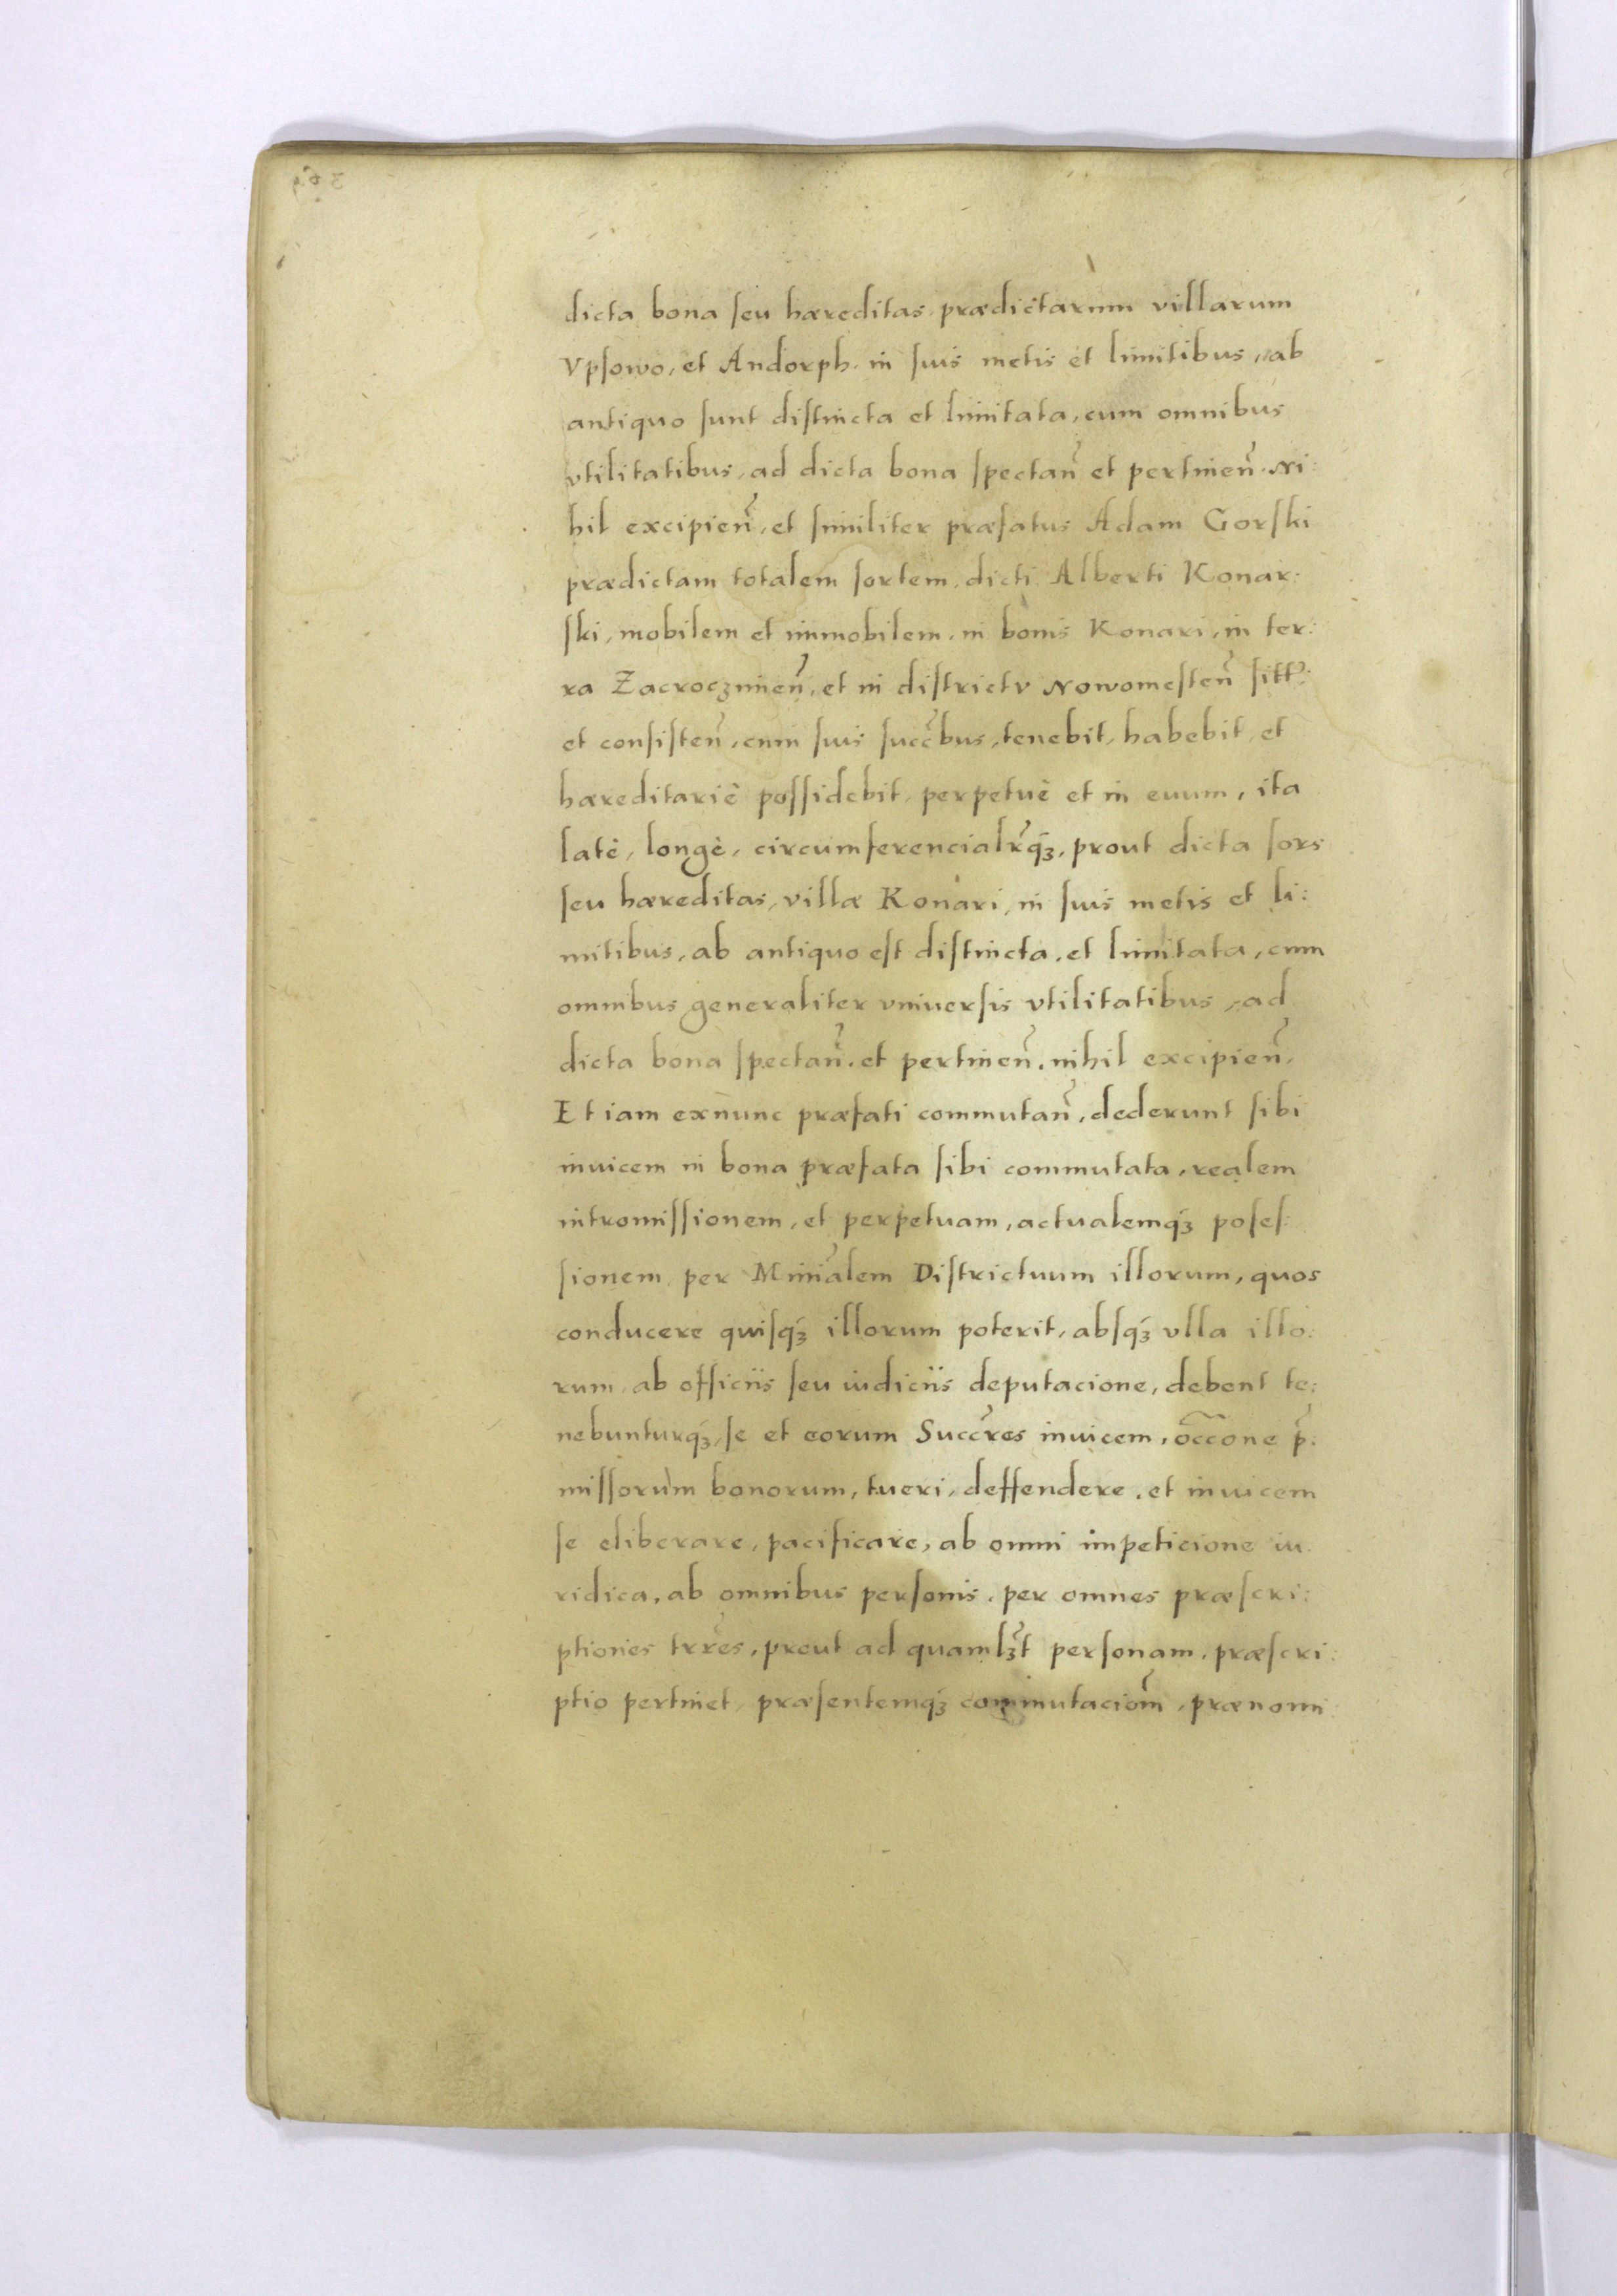 dicta bona ſeu hæreditas prædictarum villarum
Vpſowo, et Andorph. in ſuis metis et limitibus, ab
antiquo ſunt diſtincta et limitata, cum omnibus
vtilitatibus, ad dicta bona ſpectan̄ et pertinen̄. Ni:
hil excipien̄, et ſimiliter præfatus Adam Gorſki
prædictam totalem ſortem, dicti Alberti Konar:
ſki, mobilem et immobilem, in bonis Konari, in ter:
ra Zacroczimen̄, et in diſtrictv Nowomeſten̄ ſitt:
et conſiſten̄, cum ſuis ſucc̄bus, tenebit, habebit, et
hæreditariè poſſidebit, perpetuè et in euum, ita
latè, longè, circumferencialr̄qꝫ, prout dicta ſors
ſeu hæreditas, villæ Konari, in ſuis metis et li:
mitibus, ab antiquo eſt diſtincta, et limitata, cum
omnibus generaliter vniuerſis vtilitatibus, ad
dicta bona ſpectan̄. et pertinen̄. nihil excipien̄,
Et iam exnunc præfati commutan̄, dederunt ſibi
inuicem in bona præfata ſibi commutata, realem
intromiſſionem, et perpetuam, actualemqꝫ poſeſ:
ſionem, per Miniālem Diſtrictuum illorum, quos
conducere quiſqꝫ illorum poterit, abſqꝫ vlla illo:
rum, ab officiis ſeu iudiciis deputacione, debent te:
nebunturqꝫ, ſe et eorum Succr̄es inuicem, occ̄one p̄:
miſſorum bonorum, tueri, deffendere, et inuicem
ſe eliberare, pacificare, ab omni impeticione iu
ridica, ab omnibus perſonis, per omnes præſcri:
ptiones trr̄es, prout ad quamlꝫt perſonam, præſcri:
ptio pertinet, præſentemqꝫ commutaciom̄, prænomi: